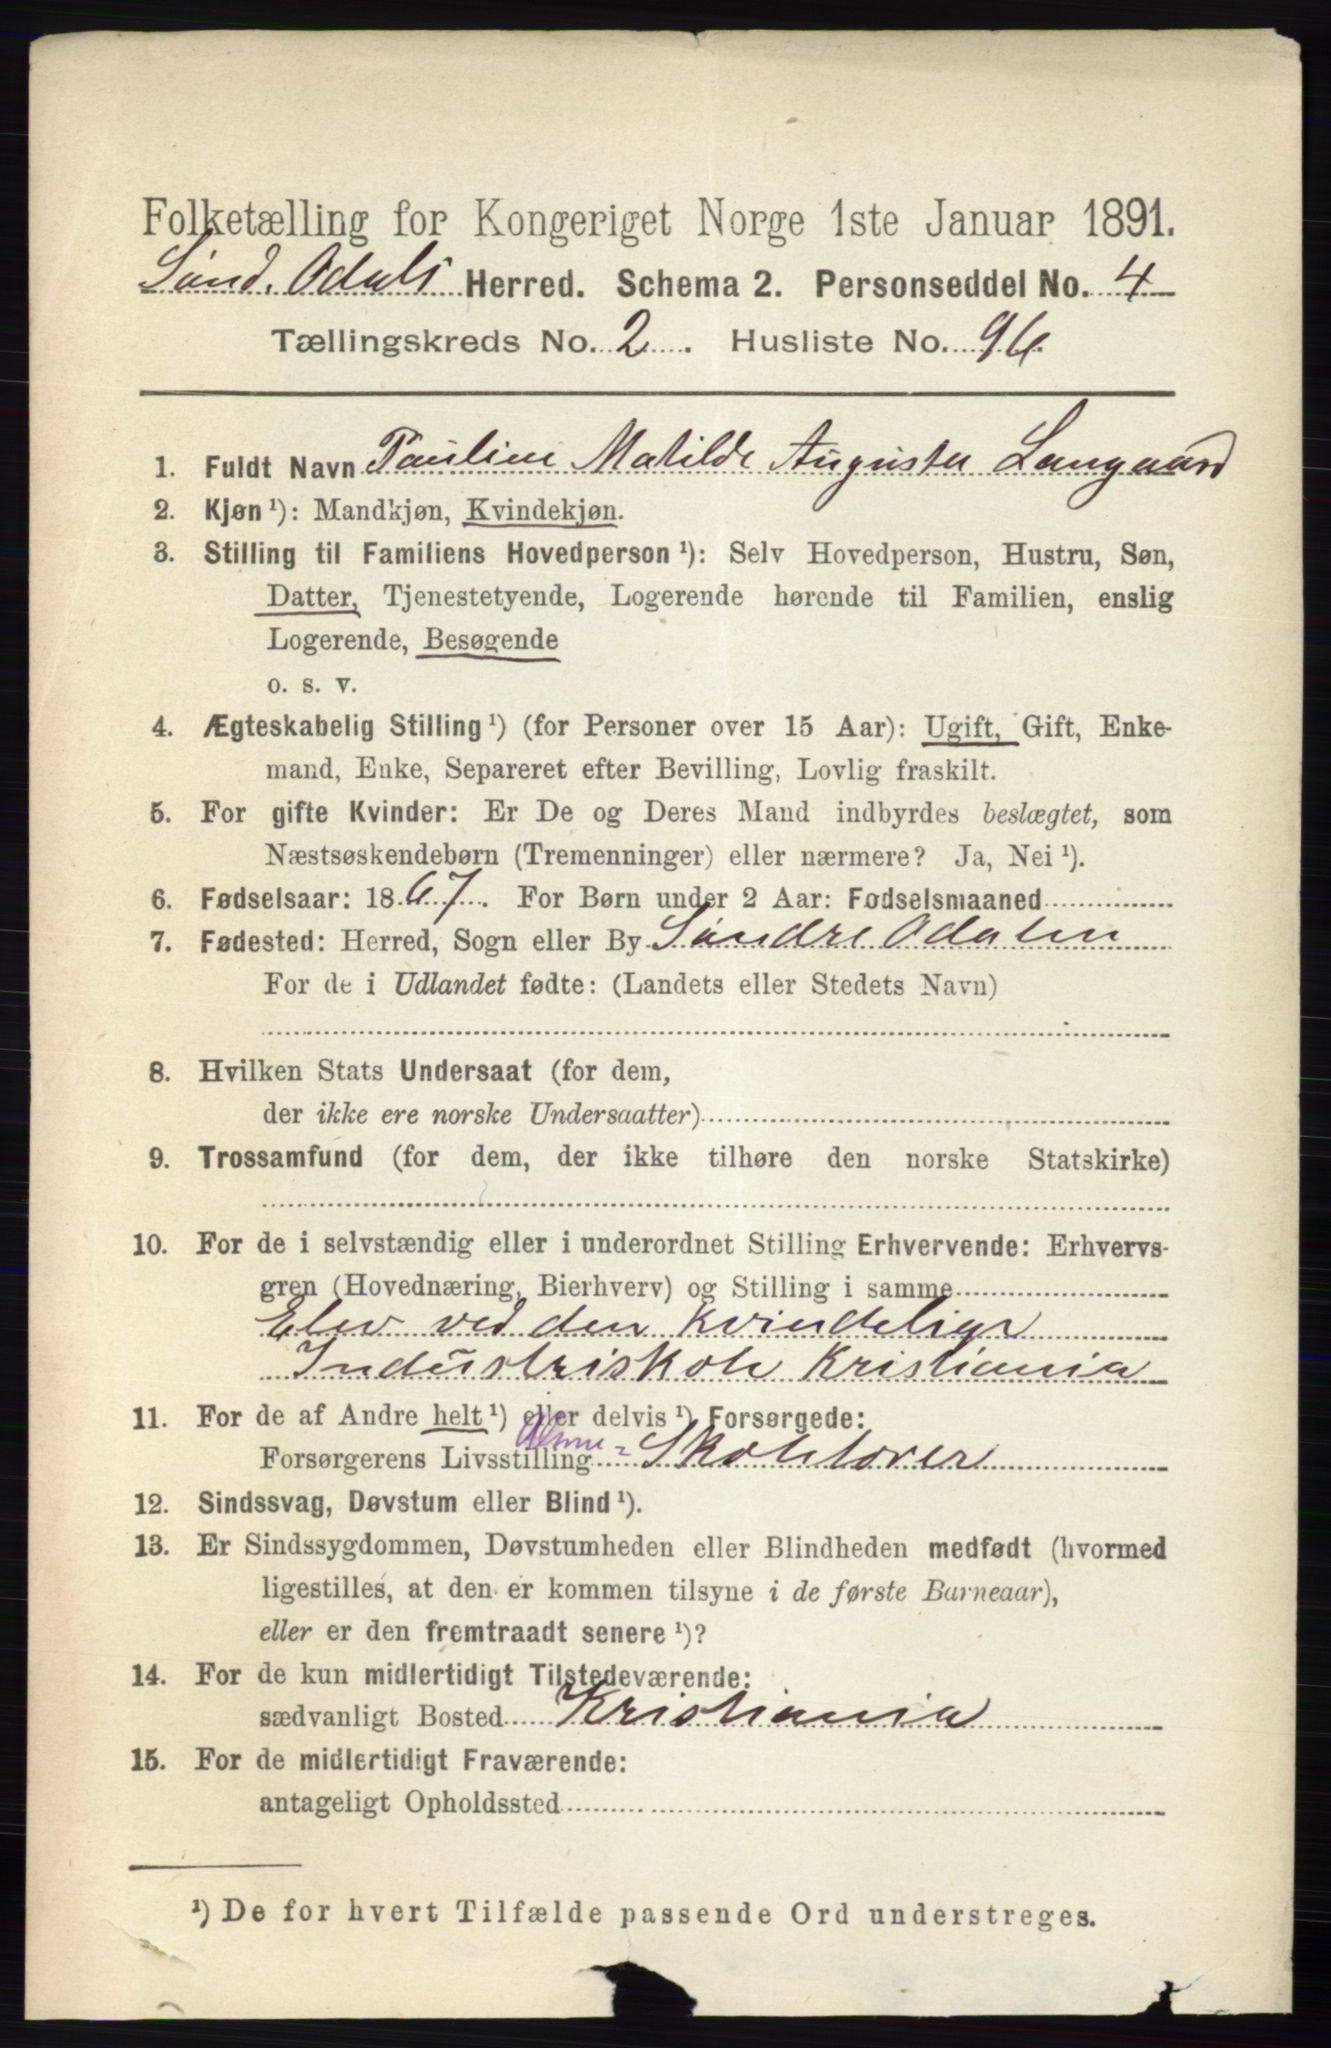 Folketælling for Kongeriget Norge 1ste Januar 1891.
Sönd. Odals Herred. Schema 2. Personseddel No. 4
Tællingskreds No. 2. Husliste No. 96.
1. Fuldt Navn Pauline Matilde Augusta Langaard
2. Kjøn ¹): Mandkjøn, Kvindekjøn.
3. Stilling til Familiens Hovedperson ¹): Selv Hovedperson, Hustru, Søn,
Datter, Tjenestetyende, Logerende hørende til Familien, enslig
Logerende, Besøgende
o. s. v.
4. Ægteskabelig Stilling ¹) (for Personer over 15 Aar): Ugift, Gift, Enke-
mand, Enke, Separeret efter Bevilling, Lovlig fraskilt.
5. For gifte Kvinder: Er De og Deres Mand indbyrdes beslægtet, som
Næstsøskendebørn (Tremenninger) eller nærmere? Ja, Nei ¹).
6. Fødselsaar: 1867. For Børn under 2 Aar: Fødselsmaaned
7. Fødested: Herred, Sogn eller By Söndre Odalen
For de i Udlandet fødte: (Landets eller Stedets Navn)
8. Hvilken Stats Undersaat (for dem,
der ikke ere norske Undersaatter)
9. Trossamfund (for dem, der ikke tilhøre den norske Statskirke)
10. For de i selvstændig eller i underordnet Stilling Erhvervende: Erhvervs-
gren (Hovednæring, Bierhverv) og Stilling i samme
Elev ved den kvindelige
Industriskole Kristiania
11. For de af Andre helt ¹) eller delvis ¹) Forsørgede:
Forsørgerens Livsstilling Almu- Skolelærer
12. Sindssvag, Døvstum eller Blind ¹).
13. Er Sindssygdommen, Døvstumheden eller Blindheden medfødt (hvormed
ligestilles, at den er kommen tilsyne i de første Barneaar),
eller er den fremtraadt senere ¹)?
14. For de kun midlertidigt Tilstedeværende:
sædvanligt Bosted Kristiania
15. For de midlertidigt Fraværende:
antageligt Opholdssted
¹) De for hvert Tilfælde passende Ord understreges.